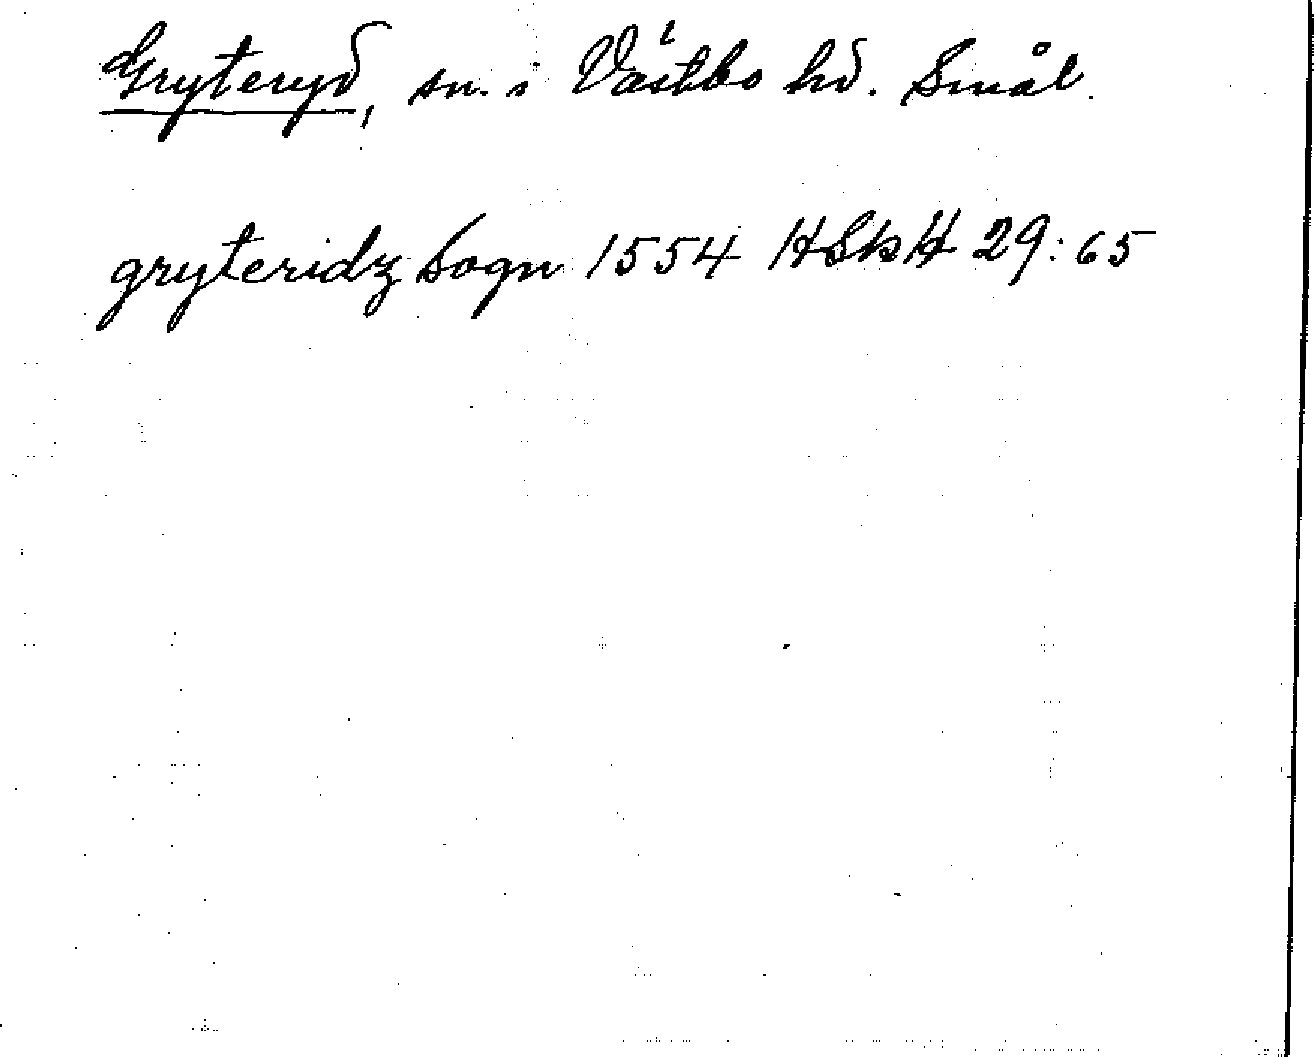 Gryteryd, sn. i Västbo hd. Smål.
gryteridz sogn 1554 HSkH 29:65